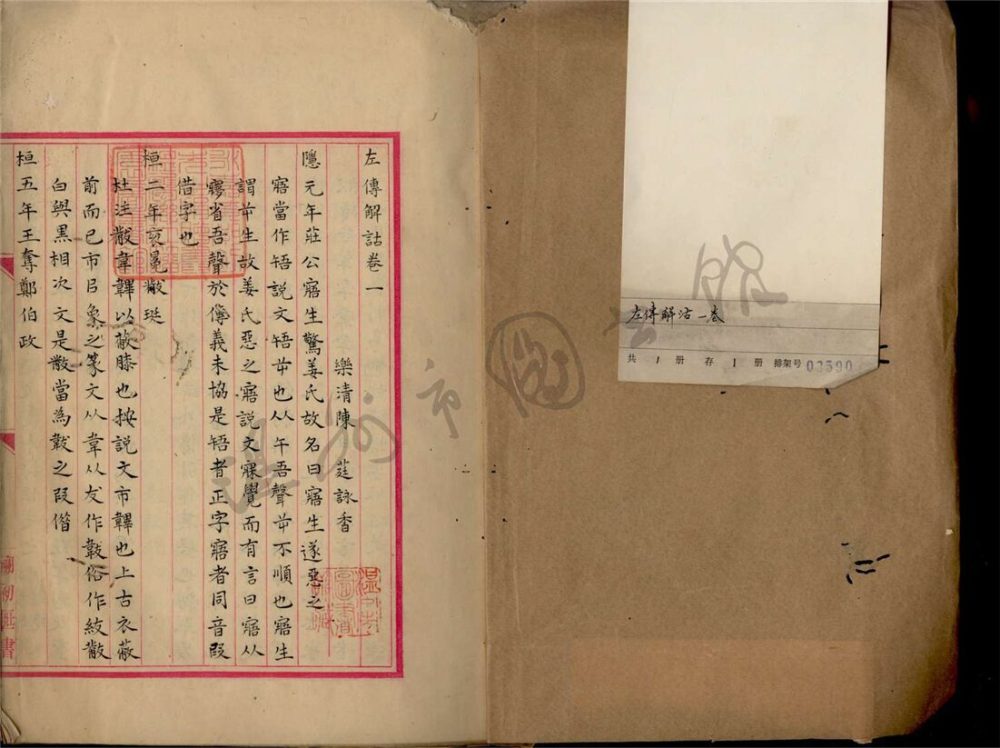 左傳解詁卷一
樂清陳 莛詠香
隱元年莊公寤生驚姜氏故名曰寤生遂惡之
寤當作啎說文啎屰也从午吾聲屰不順也寤生
謂屰生故姜氏惡之寤說文寐覺而有言曰寤从
㝱省吾聲於傳義未協是啎者正字寤者同音叚
借字也
桓二年袞冕黻珽
杜注黻韋韠以蔽膝也按說文巿韠也上古衣蔽
前而已巿㠯象之篆文从韋从犮作韍俗作紱黻
白與黑相次文是黻當為韍之叚偺
桓五年王奪鄭伯政
左傳解詁 一卷
共 1 册 存 1 册 排架号 03590
温州市圖书館